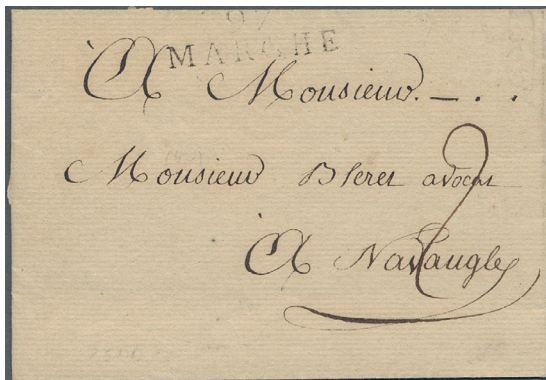 97
MARCHE
À Monsieur. — . .
Monsieur Bleret avocat
À Navaugle
2